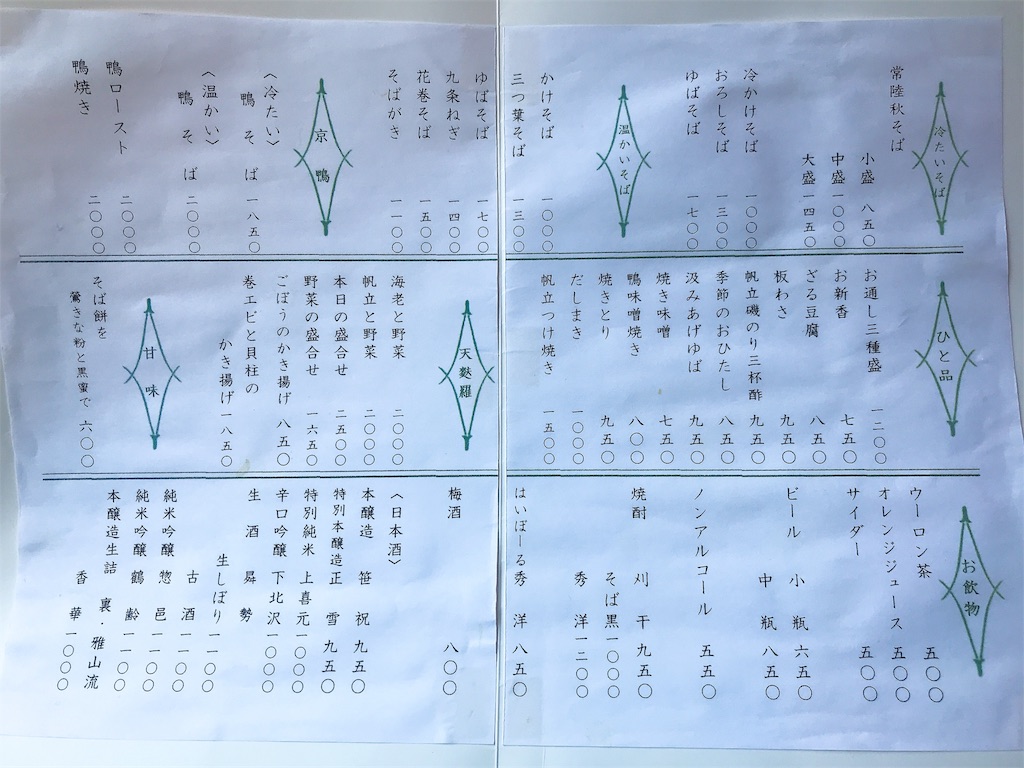 冷たいそば
常陸秋そば
小盛 八五〇
中盛 一〇〇〇
大盛 一四五〇
冷かけそば 一〇〇〇
おろしそば 一三〇〇
ゆばそば 一七〇〇
温かいそば
かけそば 一〇〇〇
三つ葉そば 一三〇〇
ゆばそば 一七〇〇
九条ねぎ 一四〇〇
花巻そば 一五〇〇
そばがき 一一〇〇
京鴨
〈冷たい〉
鴨そば 一八五〇
〈温かい〉
鴨そば 二〇〇〇
鴨ロースト 二〇〇〇
鴨焼き 二〇〇〇
ひと品
お通し三種盛 一二〇〇
お新香 七五〇
ざる豆腐 八五〇
板わさ 九五〇
帆立磯のり三杯酢 九五〇
季節のおひたし 八五〇
汲みあげゆば 九五〇
焼き味噌 七五〇
鴨味噌焼き 八〇〇
焼きとり 九五〇
だしまき 一〇〇〇
帆立つけ焼き 一五〇〇
天麩羅
海老と野菜 二〇〇〇
帆立と野菜 二〇〇〇
本日の盛合せ 二五〇〇
野菜の盛合せ 一六五〇
ごぼうのかき揚げ 八五〇
巻エビと貝柱の
かき揚げ 一八五〇
甘味
そば餅を
鶯きな粉と黒蜜で 六〇〇
お飲物
ウーロン茶 五〇〇
オレンジジュース 五〇〇
サイダー 五〇〇
ビール 小瓶 六五〇
中瓶 八五〇
ノンアルコール 五五〇
焼酎 刈干 九五〇
そば黒 一〇〇〇
秀洋 一二〇〇
はいぼーる秀洋 八五〇
梅酒 八〇〇
〈日本酒〉
本醸造 笹祝 九五〇
特別本醸造 正雪 九五〇
特別純米 上喜元 一〇〇〇
辛口吟醸 下北沢 一〇〇〇
生酒 曻勢
生しぼり 一一〇〇
古酒 一一〇〇
純米吟醸 惣邑 一一〇〇
純米吟醸 鶴齢 一一〇〇
本醸造生詰 裏・雅山流
香華 一〇〇〇